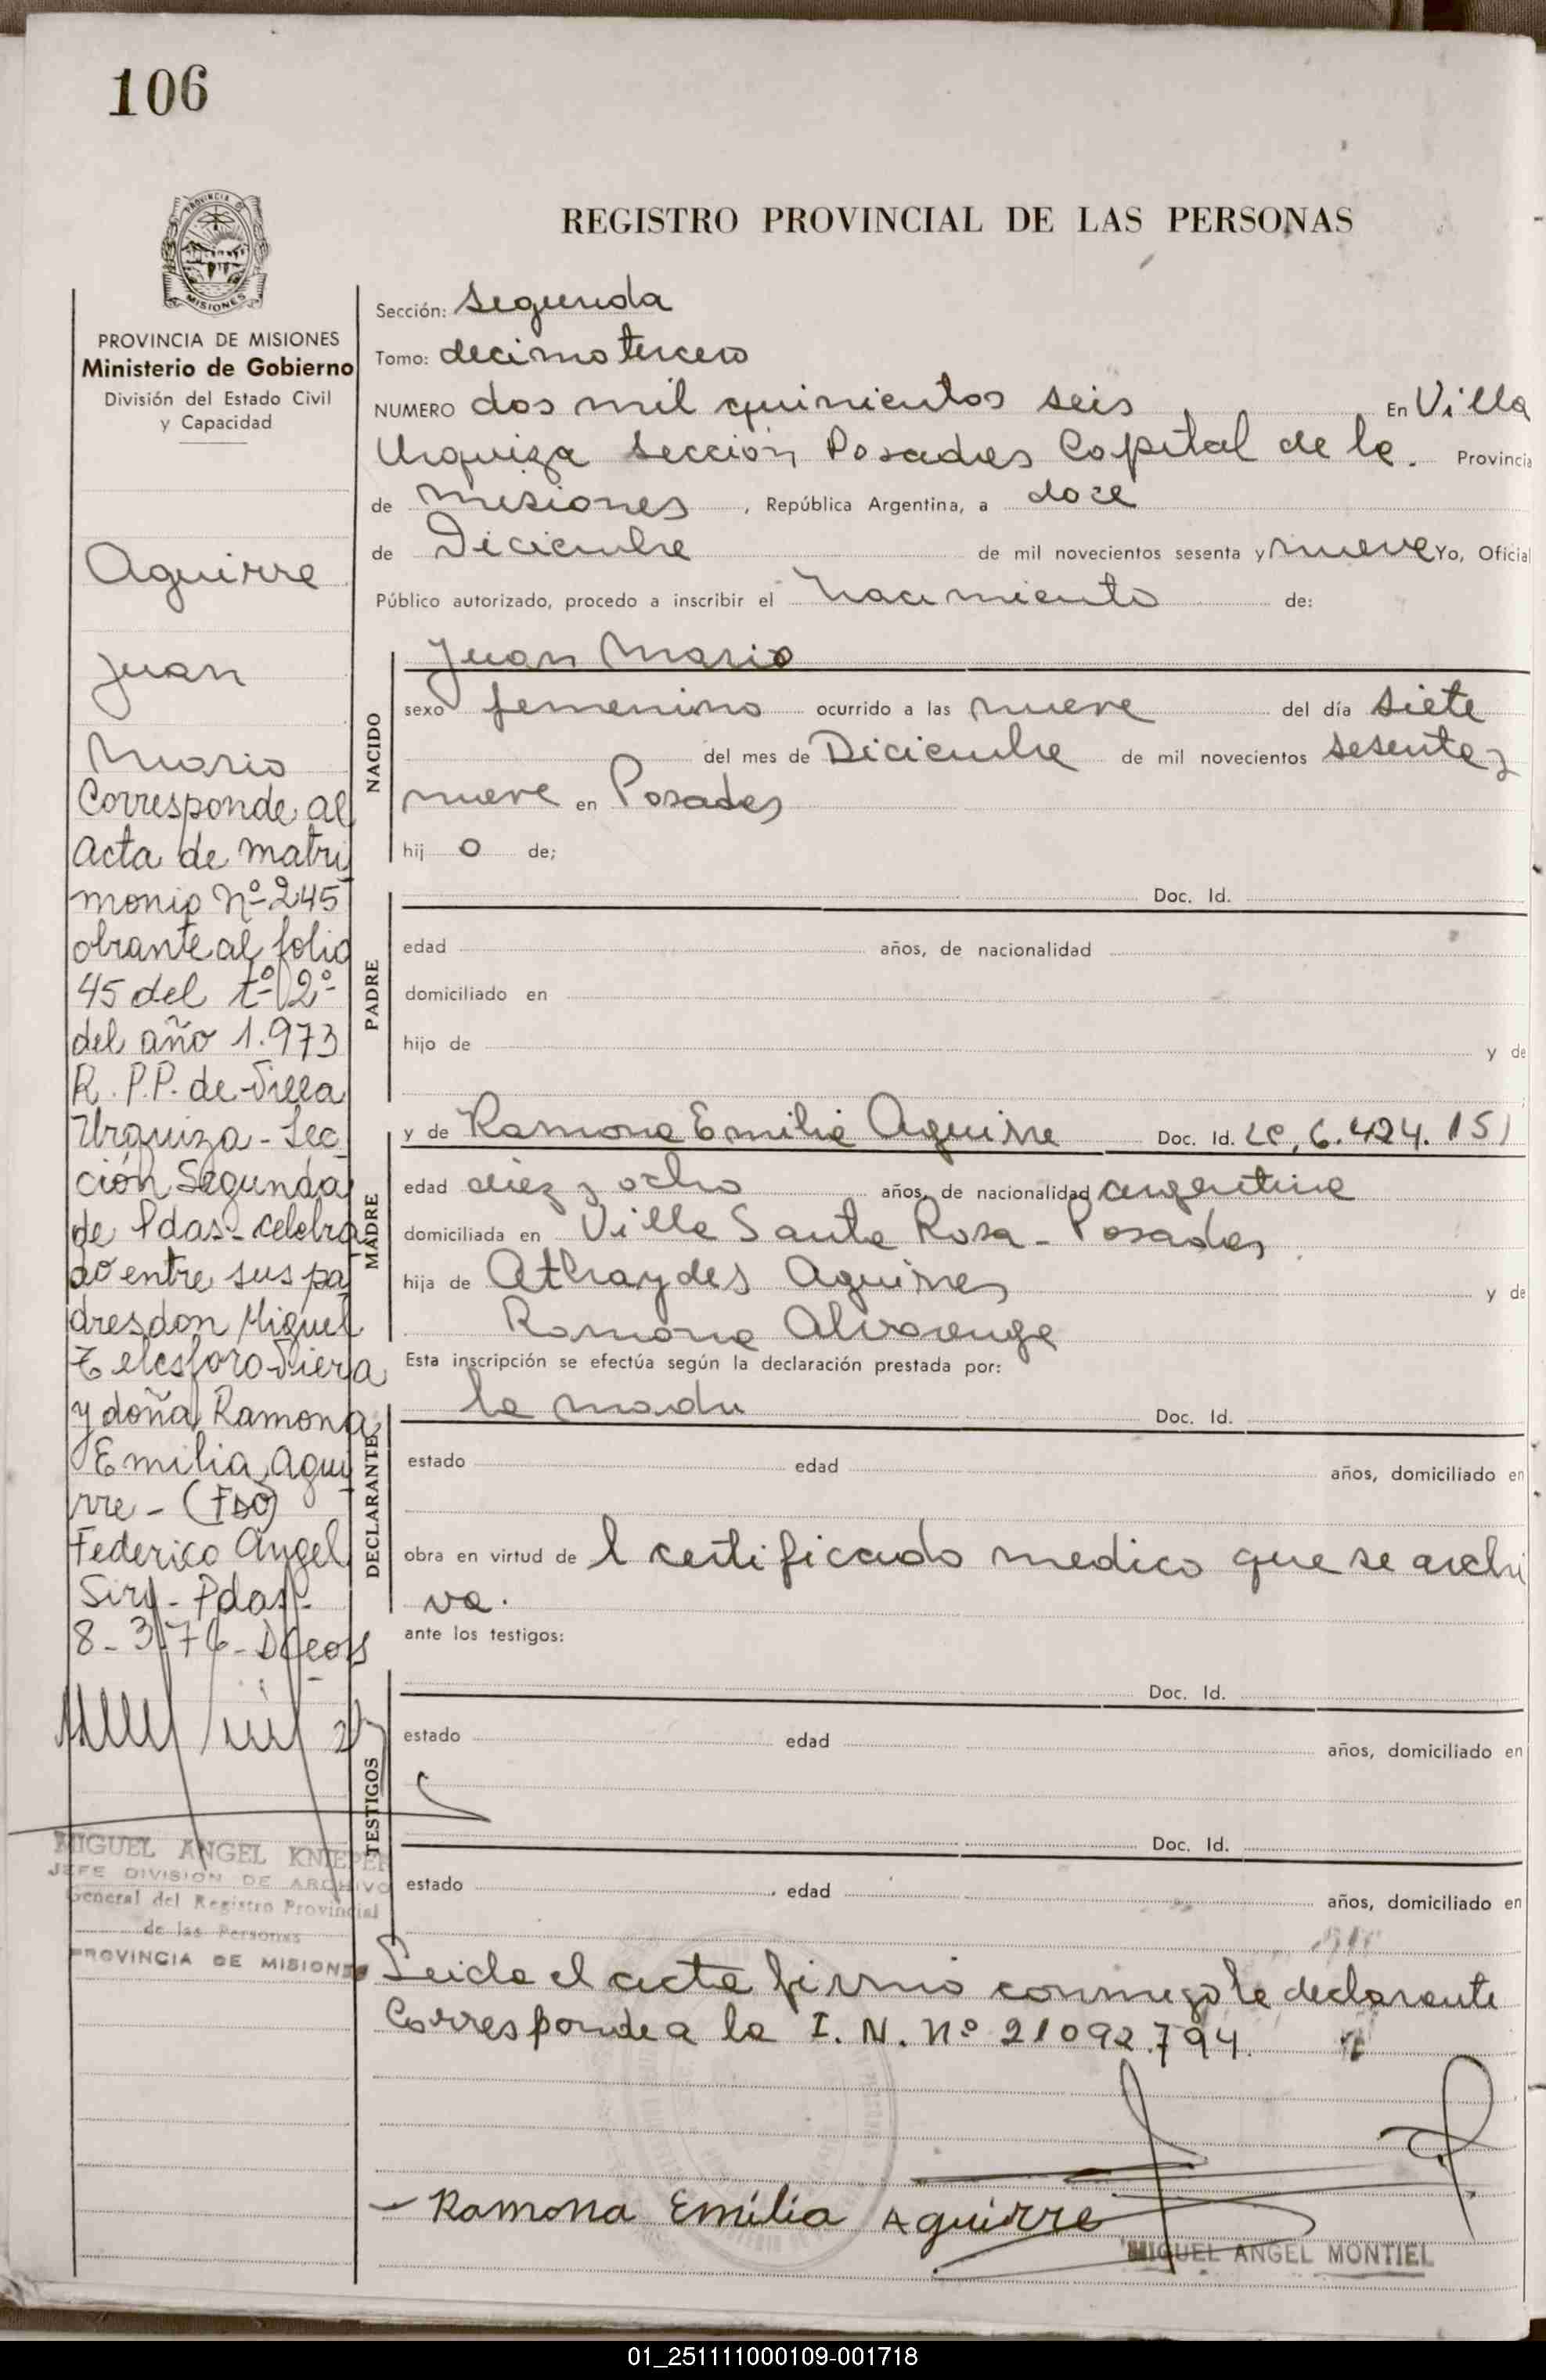 106
PROVINCIA DE
MISIONES
PROVINCIA DE MISIONES
Ministerio de Gobierno
División del Estado Civil
y Capacidad
Aguirre
Juan
Mario
Corresponde al
acta de matri
monio Nº 245
obrante al folio
45 del tº 2º
del año 1.973
R.P.P. de Villa
Urquiza - Sec
ción Segunda
de Pdas - celebra
do entre sus pa
dres don Miguel
Telesforo Viera
y doña Ramona
Emilia Agui
rre - (FDO)
Federico Angel
Siry - Pdas -
8-3-76-
MIGUEL ANGEL KNIEPER
JEFE DIVISION DE ARCHIVO
General del Registro Provincial
de las Personas
PROVINCIA DE MISIONES
REGISTRO PROVINCIAL DE LAS PERSONAS
Sección: segunda
Tomo: decimo tercero
NUMERO dos mil quinientos seis En Villa
Urquiza sección Posadas Capital de la Provincia
de misiones, República Argentina, a doce
de Diciembre de mil novecientos sesenta y nueve Yo, Oficial
Público autorizado, procedo a inscribir el nacimiento de:
NACIDO
Juan Mario
sexo femenino ocurrido a las nueve del día siete
del mes de Diciembre de mil novecientos sesenta y
nueve en Posadas
hij o de;
PADRE
Doc. Id.
edad años, de nacionalidad
domiciliado en
hijo de y de
MADRE
y de Ramona Emilia Aguirre Doc. Id. LC. 6.424.151
edad diez y ocho años, de nacionalidad argentina
domiciliada en Villa Santa Rosa - Posadas
hija de Athaydes Aguirres y de
Ramona Alvarenga
Esta inscripción se efectúa según la declaración prestada por:
DECLARANTE
la madre Doc. Id.
estado edad años, domiciliado en
obra en virtud de l certificado medico que se archi
va.
ante los testigos:
TESTIGOS
Doc. Id.
estado edad años, domiciliado en
Doc. Id.
estado edad años, domiciliado en
Leida el acta firmó conmigo la declarante
Corresponde a la I. N. Nº 21092.794.
Ramona Emilia Aguirre
MIGUEL ANGEL MONTIEL
01_251111000109-001718